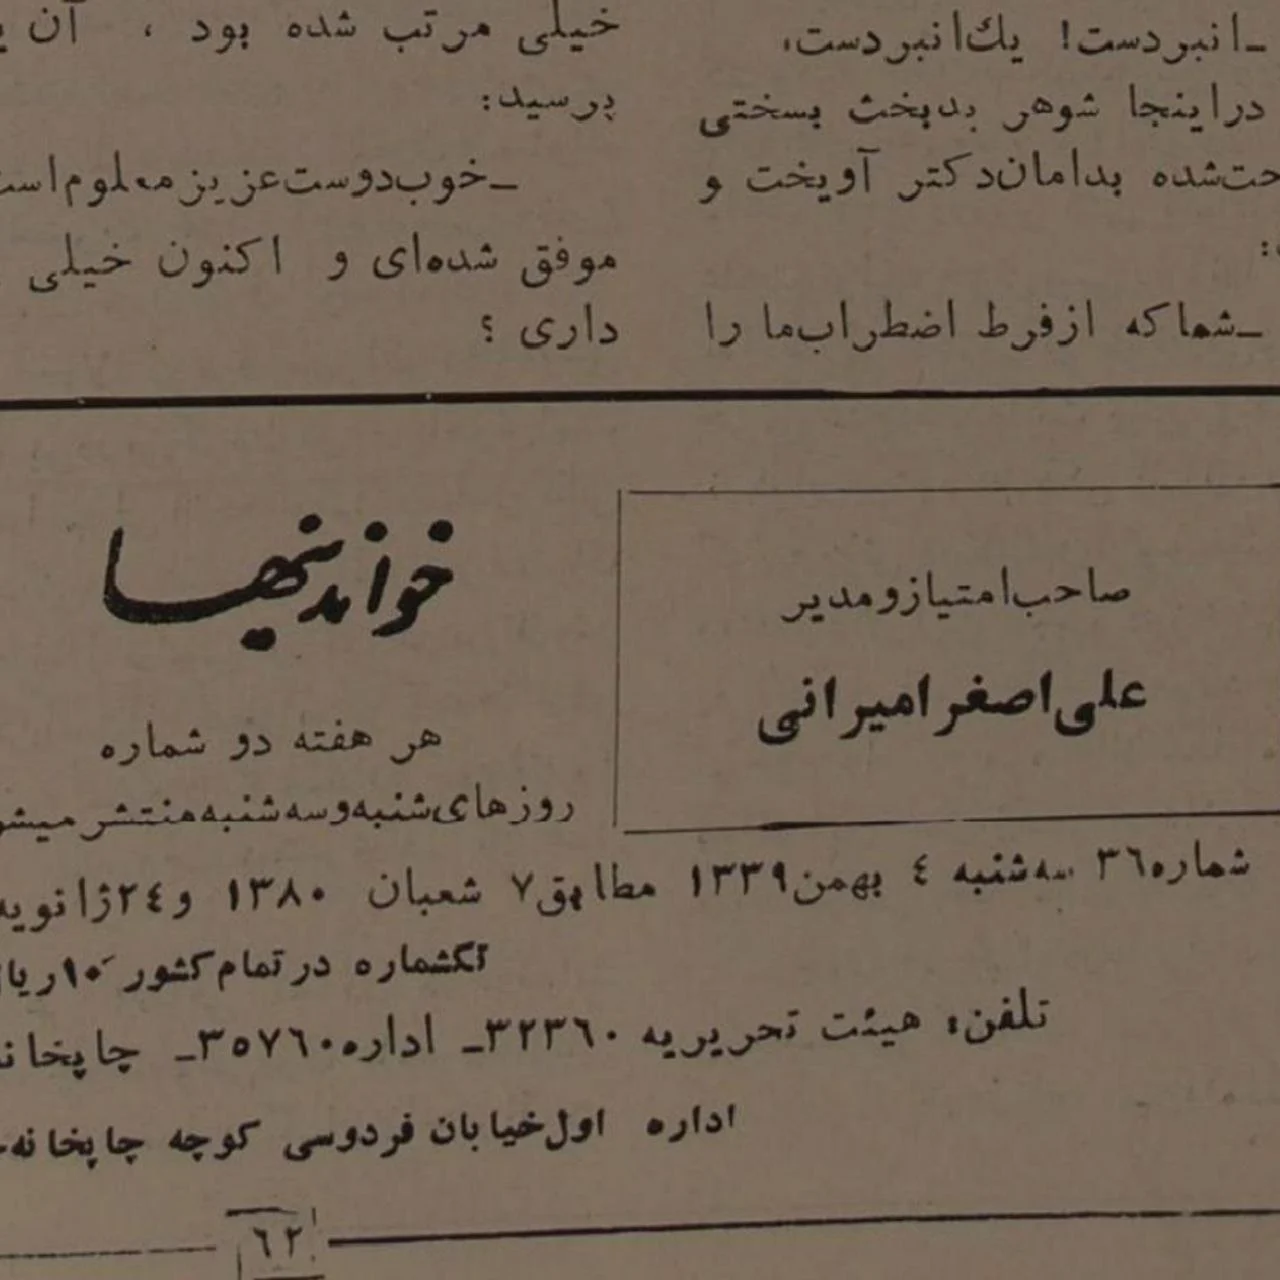 ـ انبردست! یك انبردست،
دراینجا شوهر بدبخت بسختی
شده بدامان دکتر آویخت و
:
ـ شما که از فرط اضطراب ما را
خیلی مرتب شده بود ، آن
پرسید:
ـ خوب دوست عزیز معلوم است
موفق شده‌ای و اکنون خیلی
داری ؟
صاحب امتیاز و مدیر
علی اصغر امیرانی
خواندنیها
هر هفته دو شماره
روزهای شنبه و سه شنبه منتشر میشو
شماره ۳۶ سه شنبه ٤ بهمن ۱۳۳۹ مطابق ۷ شعبان ۱۳۸۰ و ۲٤ ژانویه
تکشماره در تمام کشور ۱۰ ریال
تلفن: هیئت تحریریه ۳۲۳٦۰ ـ اداره ۳٥۷٦۰ ـ چاپخانه
اداره اول خیابان فردوسی کوچه چاپخانه
٦۲